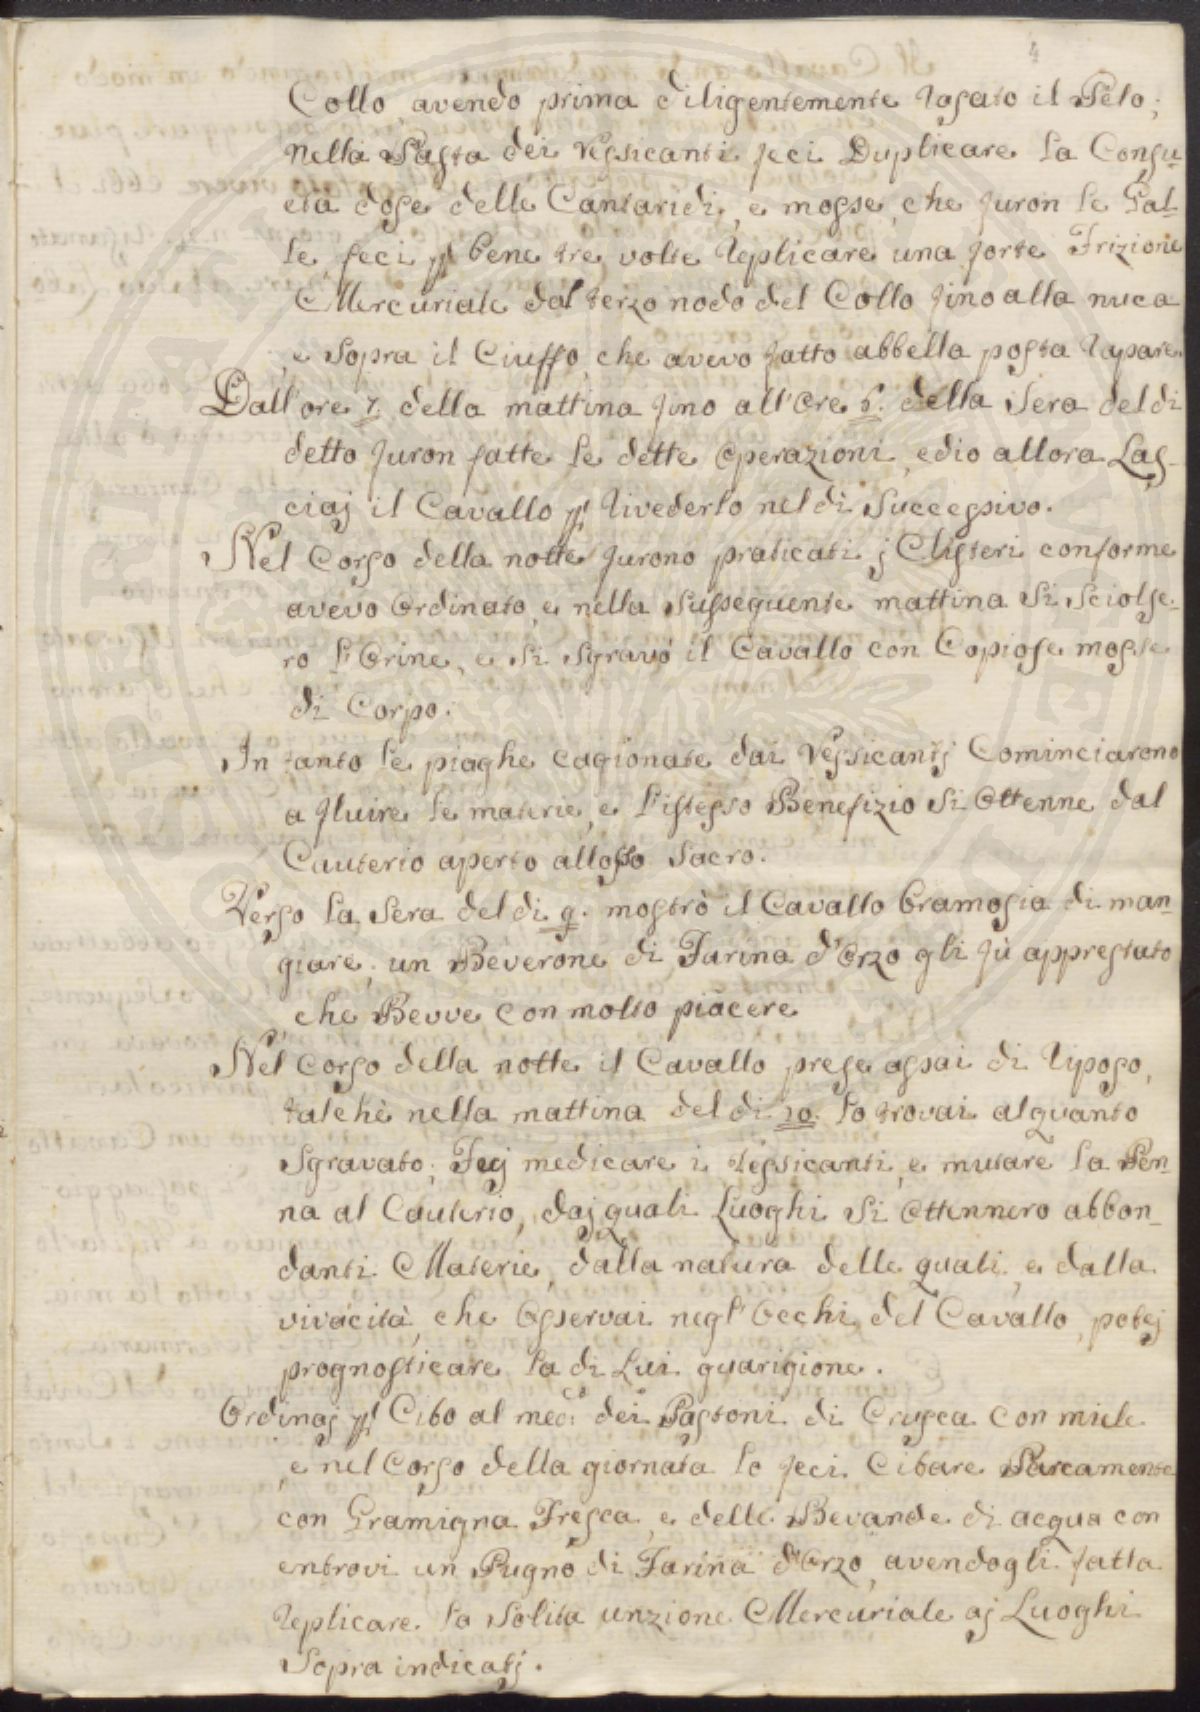 4
Collo avendo prima diligentemente rosato il Pelo,
nella Pasta dei Vessicanti feci Duplicare la Consu=
eta dose delle Cantaridi, e mosse, che furon le Gal=
le, feci p bene tre volte replicare una forte Frizione
Mercuriale dal terzo nodo del Collo fino alla nuca
e sopra il Ciuffo, che avevo fatto abbella posta rapare.
Dall'ore 7. della mattina fino all'Ore 6. della Sera del di
detto furon fatte le dette Operazioni, ed io allora Las=
ciaj il Cavallo p rivederlo nel di Successivo.
Nel Corso della notte furono praticati j Clisteri conforme
avevo Ordinato, e nella Susseguente mattina Si Sciolse=
ro l'Orine, e si sgravò il Cavallo con Copiose mosse
di Corpo.
In tanto le piaghe cagionate dai Vessicantj Cominciarono
a fluire le materie, e l'istesso Benefizio Si Ottenne dal
Cauterio aperto all'osso Sacro.
Verso la Sera del di 9. mostrò il Cavallo bramosia di man=
giare, un Beverone di Farina d'Orzo gli fù apprestato
che Bevve con molto piacere
Nel Corso della notte il Cavallo prese assai di riposo,
talchè nella mattina del di 10. lo trovai alquanto
Sgravato, Fecj medicare i Vessicanti, e mutare la Pen=
na al Cauterio, daj quali Luoghi Si Ottennero abbon=
danti Materie, dalla natura delle quali, e dalla
vivacità, che Osservai negl'Occhi del Cavallo, potej
prognosticare la di Lui guarigione.
Ordinaj p Cibo al med.º dei Pastoni di Crusca con miele
e nel Corso della giornata lo feci Cibare Parcamente
con Gramigna Fresca, e delle Bevande di acqua con
entrovi un Pugno di Farina d'Orzo, avendogli fatta
replicare la Solita unzione Mercuriale aj Luoghi
Sopra indicatj.